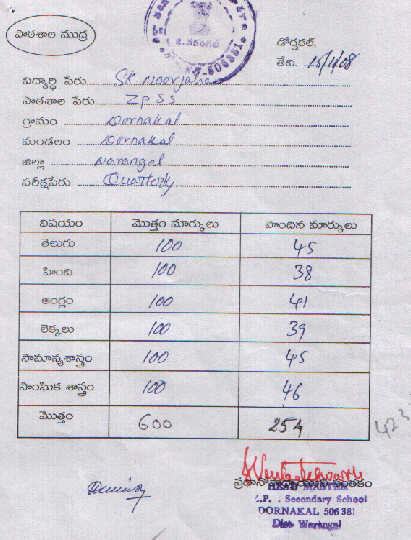 పాఠశాల ముద్ర
డోర్నకల్.
తేది. 15/4/08
విద్యార్థి పేరు SK noorjaha
పాఠశాల పేరు Z P S S
గ్రామం Dornakal
మండలం Dornakal
జిల్లా Warangal
పరీక్షపేరు Quarterly
విషయం మొత్తం మార్కులు పొందిన మార్కులు
తెలుగు 100 45
హిందీ 100 38
ఆంగ్లం 100 41
లెక్కలు 100 39
సామాన్యశాస్త్రం 100 45
సాంఘిక శాస్త్రం 100 46
మొత్తం 600 254
HEAD MASTER
Z.P. Secondary School
DORNAKAL 506381
Dist Warangal